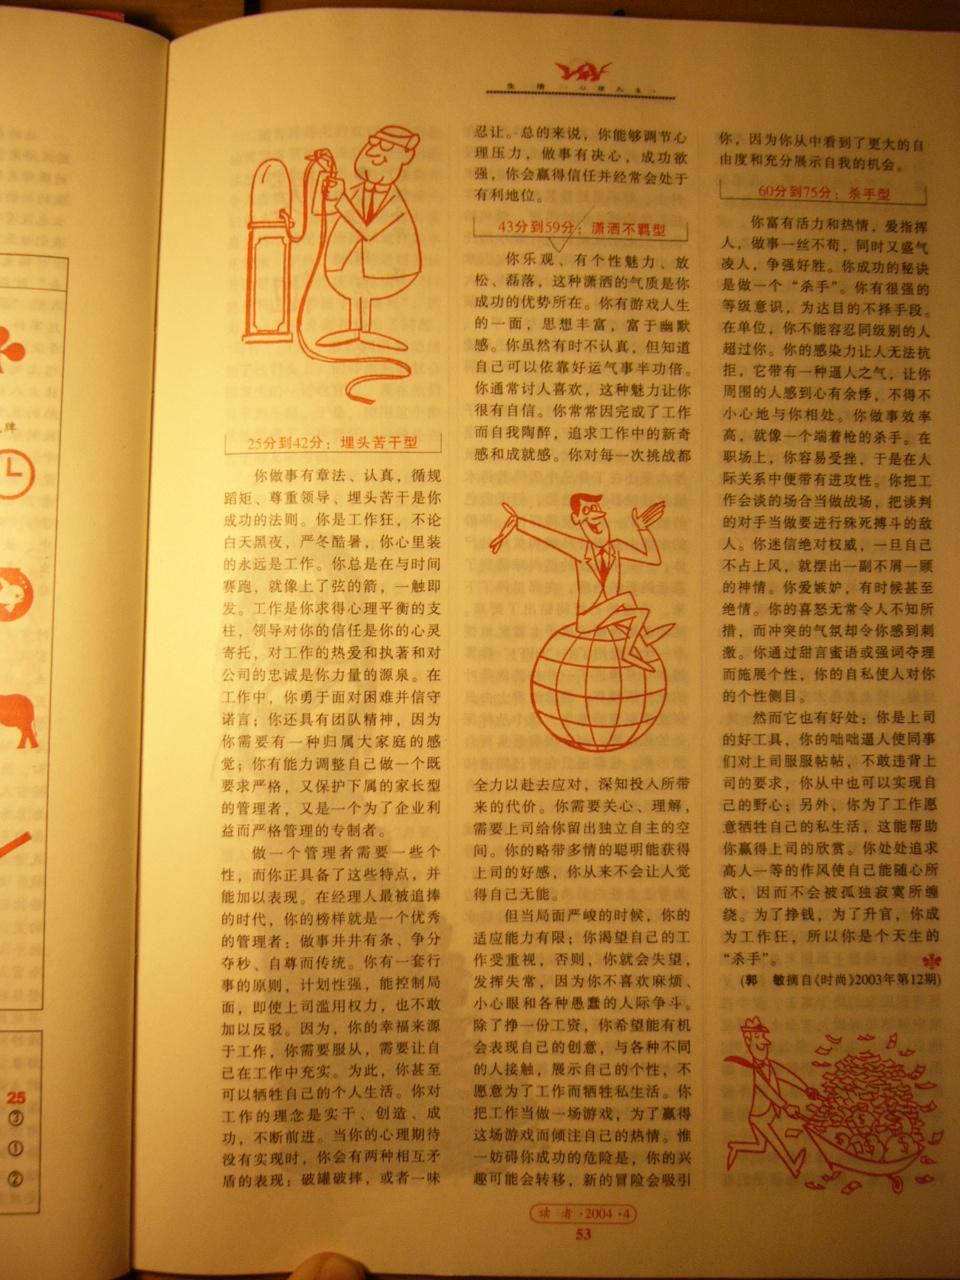 生活·心理人生
25分到42分：埋头苦干型
你做事有章法、认真，循规
蹈矩、尊重领导、埋头苦干是你
成功的法则。你是工作狂，不论
白天黑夜，严冬酷暑，你心里装
的永远是工作。你总是在与时间
赛跑，就像上了弦的箭，一触即
发。工作是你求得心理平衡的支
柱，领导对你的信任是你的心灵
寄托，对工作的热爱和执著和对
公司的忠诚是你力量的源泉。在
工作中，你勇于面对困难并信守
诺言；你还具有团队精神，因为
你需要有一种归属大家庭的感
觉；你有能力调整自己做一个既
要求严格，又保护下属的家长型
的管理者，又是一个为了企业利
益而严格管理的专制者。
做一个管理者需要一些个
性，而你正具备了这些特点，并
能加以表现。在经理人最被追捧
的时代，你的榜样就是一个优秀
的管理者：做事井井有条、争分
夺秒、自尊而传统。你有一套行
事的原则，计划性强，能控制局
面，即使上司滥用权力，也不敢
加以反驳。因为，你的幸福来源
于工作，你需要服从，需要让自
己在工作中充实。为此，你甚至
可以牺牲自己的个人生活。你对
工作的理念是实干、创造、成
功，不断前进。当你的心理期待
没有实现时，你会有两种相互矛
盾的表现：破罐破摔，或者一味
忍让。总的来说，你能够调节心
理压力，做事有决心，成功欲
强，你会赢得信任并经常会处于
有利地位。
43分到59分：潇洒不羁型
你乐观、有个性魅力、放
松、磊落，这种潇洒的气质是你
成功的优势所在。你有游戏人生
的一面，思想丰富，富于幽默
感。你虽然有时不认真，但知道
自己可以依靠好运气事半功倍。
你通常讨人喜欢，这种魅力让你
很有自信。你常常因完成了工作
而自我陶醉，追求工作中的新奇
感和成就感。你对每一次挑战都
全力以赴去应对，深知投入所带
来的代价。你需要关心、理解，
需要上司给你留出独立自主的空
间。你的略带多情的聪明能获得
上司的好感，你从来不会让人觉
得自己无能。
但当局面严峻的时候，你的
适应能力有限；你渴望自己的工
作受重视，否则，你就会失望，
发挥失常，因为你不喜欢麻烦、
小心眼和各种愚蠢的人际争斗。
除了挣一份工资，你希望能有机
会表现自己的创意，与各种不同
的人接触，展示自己的个性，不
愿意为了工作而牺牲私生活。你
把工作当做一场游戏，为了赢得
这场游戏而倾注自己的热情。惟
一妨碍你成功的危险是，你的兴
趣可能会转移，新的冒险会吸引
你，因为你从中看到了更大的自
由度和充分展示自我的机会。
60分到75分：杀手型
你富有活力和热情，爱指挥
人，做事一丝不苟，同时又盛气
凌人，争强好胜。你成功的秘诀
是做一个“杀手”。你有很强的
等级意识，为达目的不择手段。
在单位，你不能容忍同级别的人
超过你。你的感染力让人无法抗
拒，它带有一种逼人之气，让你
周围的人感到心有余悸，不得不
小心地与你相处。你做事效率
高，就像一个端着枪的杀手。在
职场上，你容易受挫，于是在人
际关系中便带有进攻性。你把工
作会谈的场合当做战场，把谈判
的对手当做要进行殊死搏斗的敌
人。你迷信绝对权威，一旦自己
不占上风，就摆出一副不屑一顾
的神情。你爱嫉妒，有时候甚至
绝情。你的喜怒无常令人不知所
措，而冲突的气氛却令你感到刺
激。你通过甜言蜜语或强词夺理
而施展个性，你的自私使人对你
的个性侧目。
然而它也有好处：你是上司
的好工具，你的咄咄逼人使同事
们对上司服服帖帖，不敢违背上
司的要求，你从中也可以实现自
己的野心；另外，你为了工作愿
意牺牲自己的私生活，这能帮助
你赢得上司的欣赏。你处处追求
高人一等的作风使自己能随心所
欲，因而不会被孤独寂寞所缠
绕。为了挣钱，为了升官，你成
为工作狂，所以你是个天生的
“杀手”。
(郭　敏摘自《时尚》2003年第12期)
读者·2004·4
53
牌
25
③
①
②